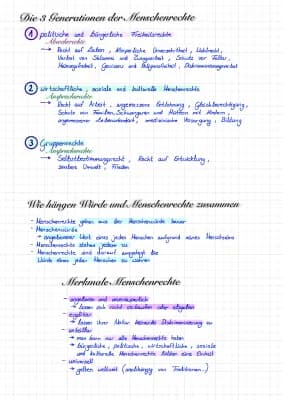 Die 3 Generationen der Menschenrechte
1 politische und bürgerliche Freiheitsrechte
Abwehrrechte
→ Recht auf Leben, Körperliche Unversehrtheit, Wahlrecht,
Verbot von Sklaverei und Zwangsarbeit, Schutz vor Folter,
Meinungsfreiheit, Gewissens und Religionsfreiheit, Diskriminierungsverbot
2 wirtschaftliche, soziale und kulturelle Menschenrechte
Anspruchsrechte
→ Recht auf Arbeit, angemessene Entlohnung, Gleichberechtigung,
Schutz von Familien, Schwangeren und Müttern mit Kindern,
angemessener Lebensstandard, medizinische Versorgung, Bildung
3 Gruppenrechte
Anspruchsrechte
→ Selbstbestimmungsrecht, Recht auf Entwicklung,
saubere Umwelt, Frieden
Wie hängen Würde und Menschenrechte zusammen
- Menschenrechte gehen aus der Menschenwürde hervor
- Menschenwürde
→ angeborener Wert eines jeden Menschen aufgrund seines Menschseins
- Menschenrechte stehen jedem zu
- Menschenrechte sind darauf ausgelegt die
Würde eines jeden Menschen zu wahren
Merkmale Menschenrechte
- angeboren und unveräusserlich
→ lassen sich nicht verkaufen oder abgeben
- egalitär
→ lassen ihrer Natur keinerlei Diskriminierung zu
- unteilbar
→ man kann nur alle Menschenrechte haben
→ bürgerliche, politische, wirtschaftliche, soziale
und kulturelle Menschenrechte bilden eine Einheit
- universell
→ gelten weltweit (unabhängig von Traditionen...)